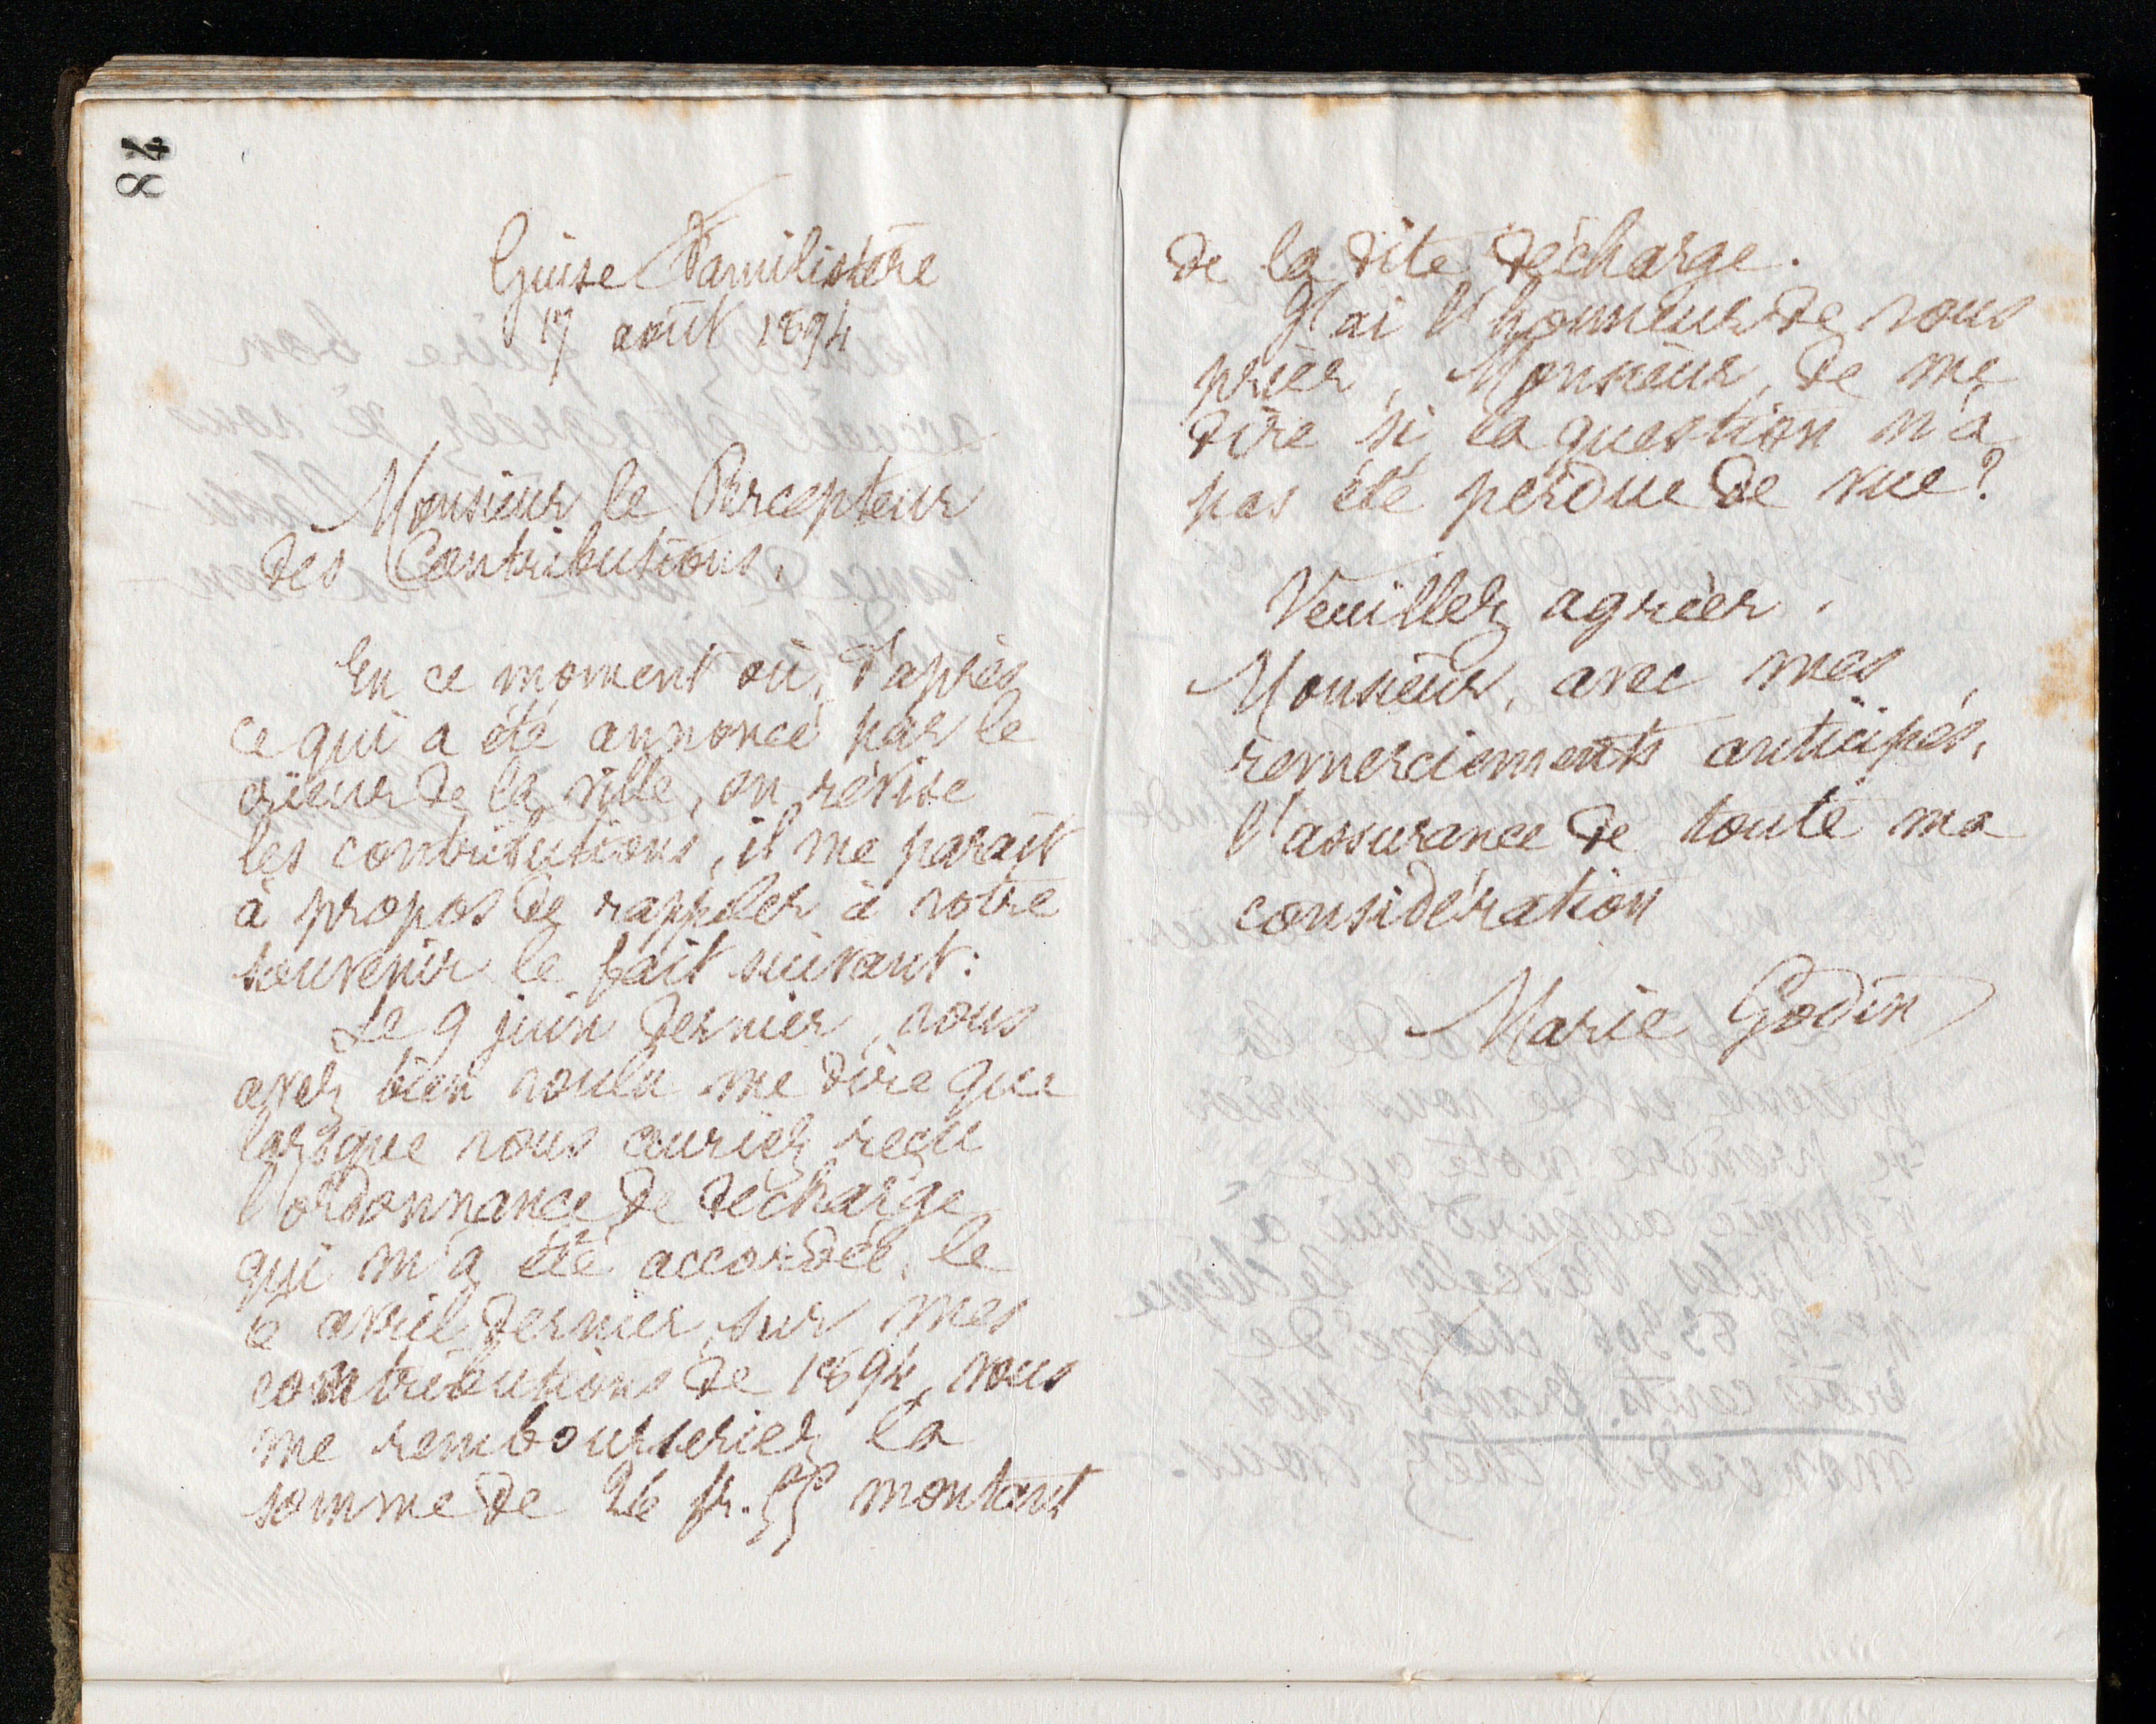 84
Guise Familistère
17 août 1894
Monsieur le Percepteur
des Contributions,
En ce moment où, d'après
ce qui a été annoncé par le
crieur de la ville, on révise
les contributions, il me paraît
à propos de rappeler à votre
souvenir le fait suivant:
Le 9 juin dernier, vous
avez bien voulu me dire que
lorsque vous auriez reçu
l'ordonnance de décharge
qui m'a été accordée, le
6 avril dernier, sur mes
contributions de 1894, vous
me rembourseriez la
somme de 26 fr. 55 montant
de la dite décharge.
J'ai l'honneur de vous
prier, Monsieur, de me
dire si la question n'a
pas été perdue de vue?
Veuillez agréer,
Monsieur, avec mes
remerciements anticipés,
l'assurance de toute ma
considération
Marie Godin